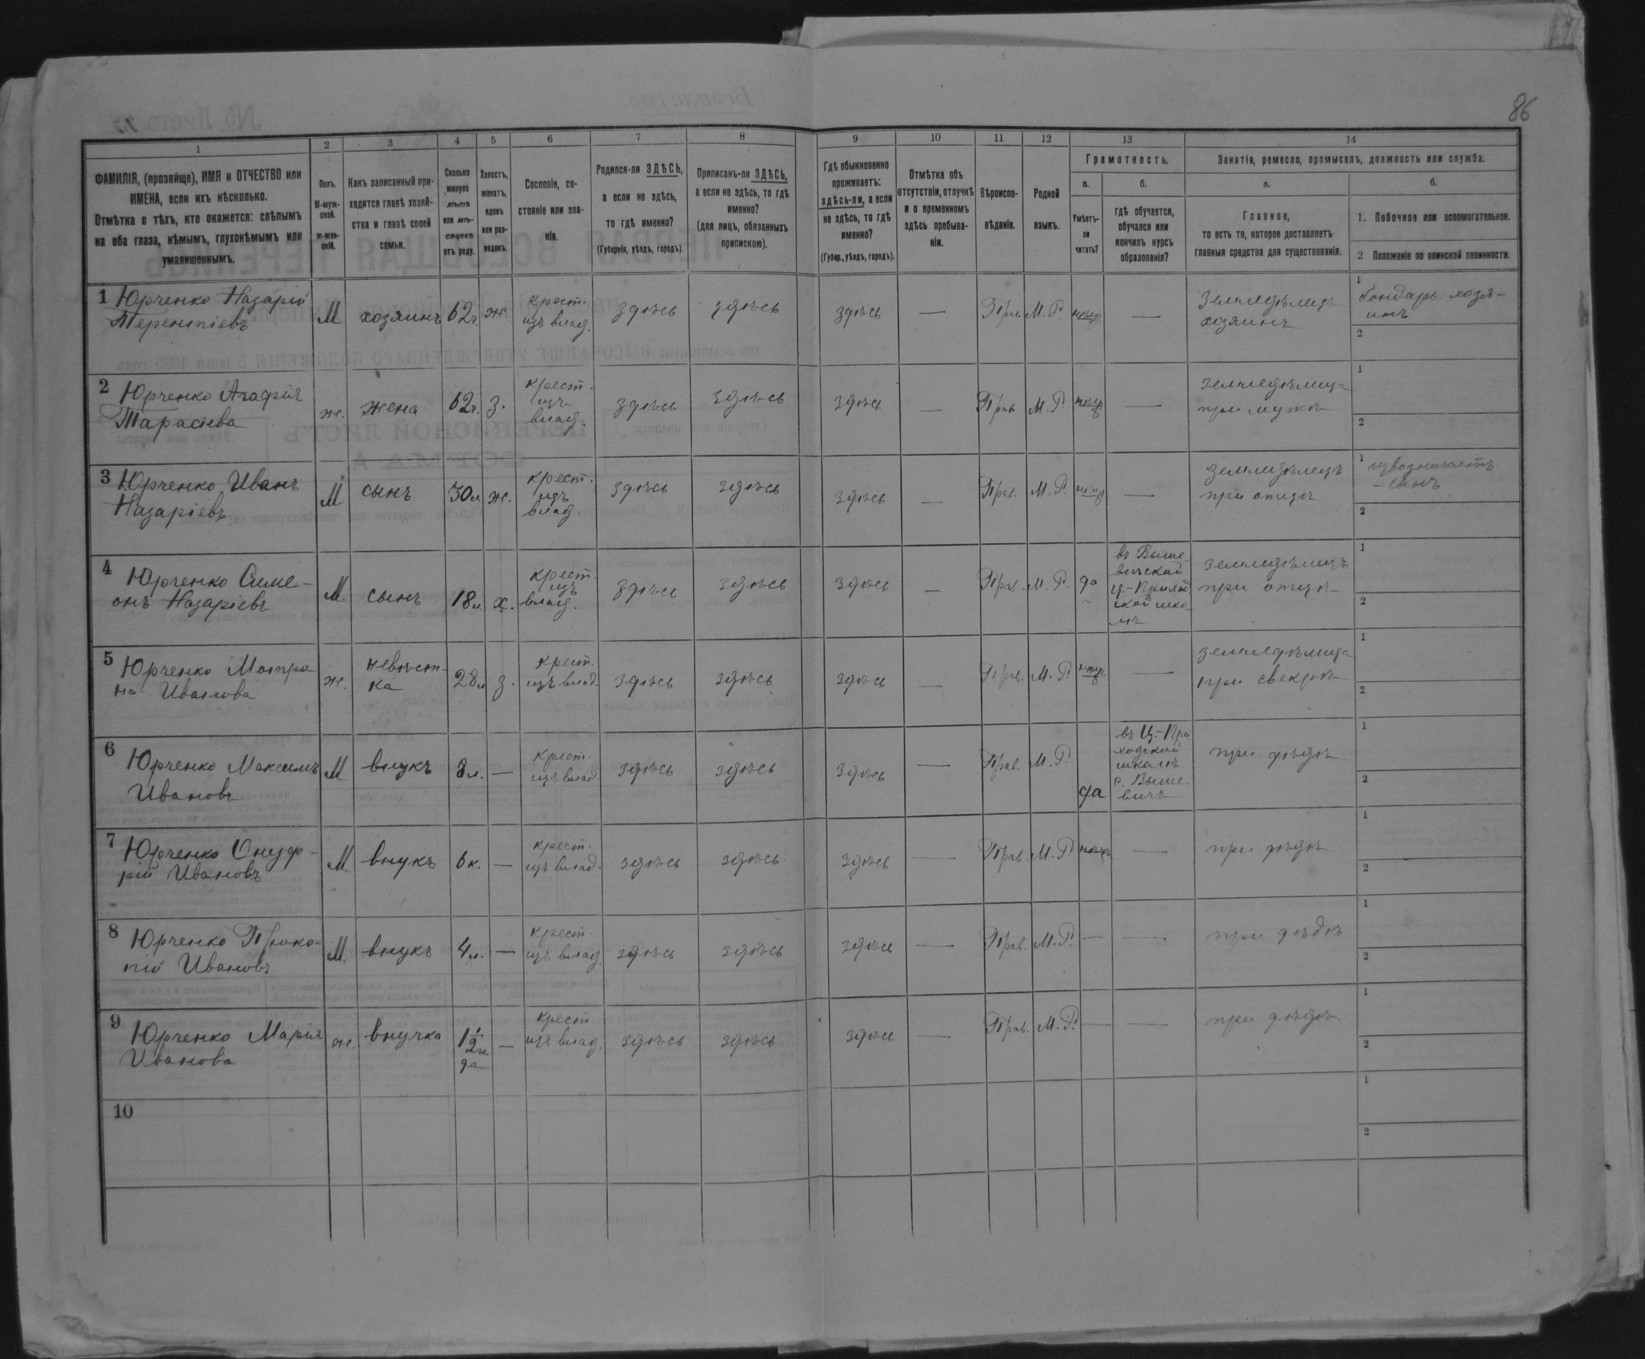 86
1 2 3 4 5 6 7 8 9 10 11 12 13 14
ФАМИЛІЯ, (прозвище), ИМЯ и ОТЧЕСТВО или
ИМЕНА, если ихъ нѣсколько.
Отмѣтка о тѣхъ, кто окажется: слѣпымъ
на оба глаза, нѣмымъ, глухонѣмымъ или
умалишеннымъ.
Полъ.
М-муж-
ской.
ж-жен-
скій.
Какъ записанный при-
ходится главѣ хозяй-
ства и главѣ своей
семьи.
Сколько
минуло
лѣтъ
или мѣ-
сяцевъ
отъ роду.
Холостъ,
женатъ,
вдовъ
или раз-
веденъ.
Сословіе, со-
стояніе или зва-
ніе.
Родился-ли ЗДѢСЬ,
а если не здѣсь,
то гдѣ именно?
(Губернія, уѣздъ, городъ).
Приписанъ-ли ЗДѢСЬ,
а если не здѣсь, то гдѣ
именно?
(для лицъ, обязанныхъ
припискою).
Гдѣ обыкновенно
проживаетъ:
здѣсь-ли, а если
не здѣсь, то гдѣ
именно?
(Губер., уѣздъ, городъ).
Отмѣтка объ
отсутствіи, отлучкѣ
и о временномъ
здѣсь пребыва-
ніи.
Вѣроиспо-
вѣданіе.
Родной
языкъ.
Грамотность.
а.
Умѣетъ-
ли
читать?
б.
гдѣ обучается,
обучался или
кончилъ курсъ
образованія?
Занятія, ремесло, промыселъ, должность или служба.
а.
Главное,
то есть то, которое доставляетъ
главныя средства для существованія.
б.
1. Побочное или вспомогательное.
2 Положеніе по воинской повинности.
1 Юрченко Назарій
Терентіевъ
М хозяинъ 62 г. ж. крест.
изъ влад. здѣсь здѣсь здѣсь — Прав. М. Р. — Земледѣлецъ
хозяинъ
1 бондарь хозя-
инъ
2
2 Юрченко Агафія
Тарасіева
ж. жена 62 г. з. крест.
изъ
влад. здѣсь здѣсь здѣсь — Прав. М. Р. — земледѣлица
при мужѣ
1
2
3 Юрченко Иванъ
Назаріевъ
М сынъ 30 л. ж. крест.
изъ
влад. здѣсь здѣсь здѣсь — Прав. М. Р. — земледѣлецъ
при отцѣ
1
2
4 Юрченко Симе-
онъ Назаріевъ
М сынъ 18 л. х. крест.
изъ
влад. здѣсь здѣсь здѣсь — Прав. М. Р. да въ Выше-
вичской
ц.-Приход
ской шко
лѣ
земледѣлецъ
при отцѣ
1
2
5 Юрченко Матро
на Иванова
ж. невѣст-
ка 28 л. з. крест.
изъ влад. здѣсь здѣсь здѣсь — Прав. М. Р. — земледѣлица
при свекрѣ
1
2
6 Юрченко Максимъ
Ивановъ
М внукъ 8 л. — крест.
изъ влад. здѣсь здѣсь здѣсь — Прав. М. Р. да въ Ц.-При
ходской
школѣ
с. Выше-
вичъ
при дѣдѣ
1
2
7 Юрченко Онуф-
рій Ивановъ
М внукъ 6 л. — крест.
изъ влад. здѣсь здѣсь здѣсь — Прав. М. Р. — при дѣдѣ
1
2
8 Юрченко Проко-
пій Ивановъ
М. внукъ 4 л. — крест.
изъ влад. здѣсь здѣсь здѣсь — Прав. М. Р. — — при дѣдѣ
1
2
9 Юрченко Марія
Иванова
ж. внучка 1½ го
да — крест.
изъ влад. здѣсь здѣсь здѣсь — Прав. М. Р. — — при дѣдѣ.
1
2
10
1
2